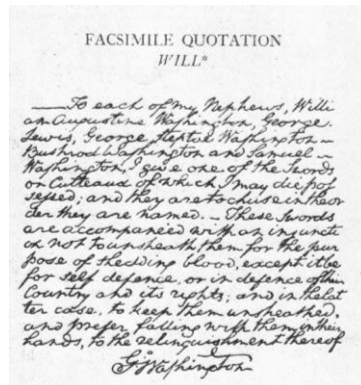 FACSIMILE QUOTATION
WILL*
To each of my Nephews, Willi
am Augustine Washington, George
Lewis, George Steptoe Washington
Bushrod Washington and Samuel
Washington, I give one of the Swords
or Cutteaux of which I may die pos
sessed; and they are to chuse in the or
der they are named. - These Swords
are accompanied with an injuncti
on not to unsheath them for the pur
pose of shedding blood, except it be
for self defence, or in defence of their
Country and its rights; and in the lat
ter case, to keep them unsheathed,
and prefer falling with them in their
hands, to the relinquishment thereof
G. Washington